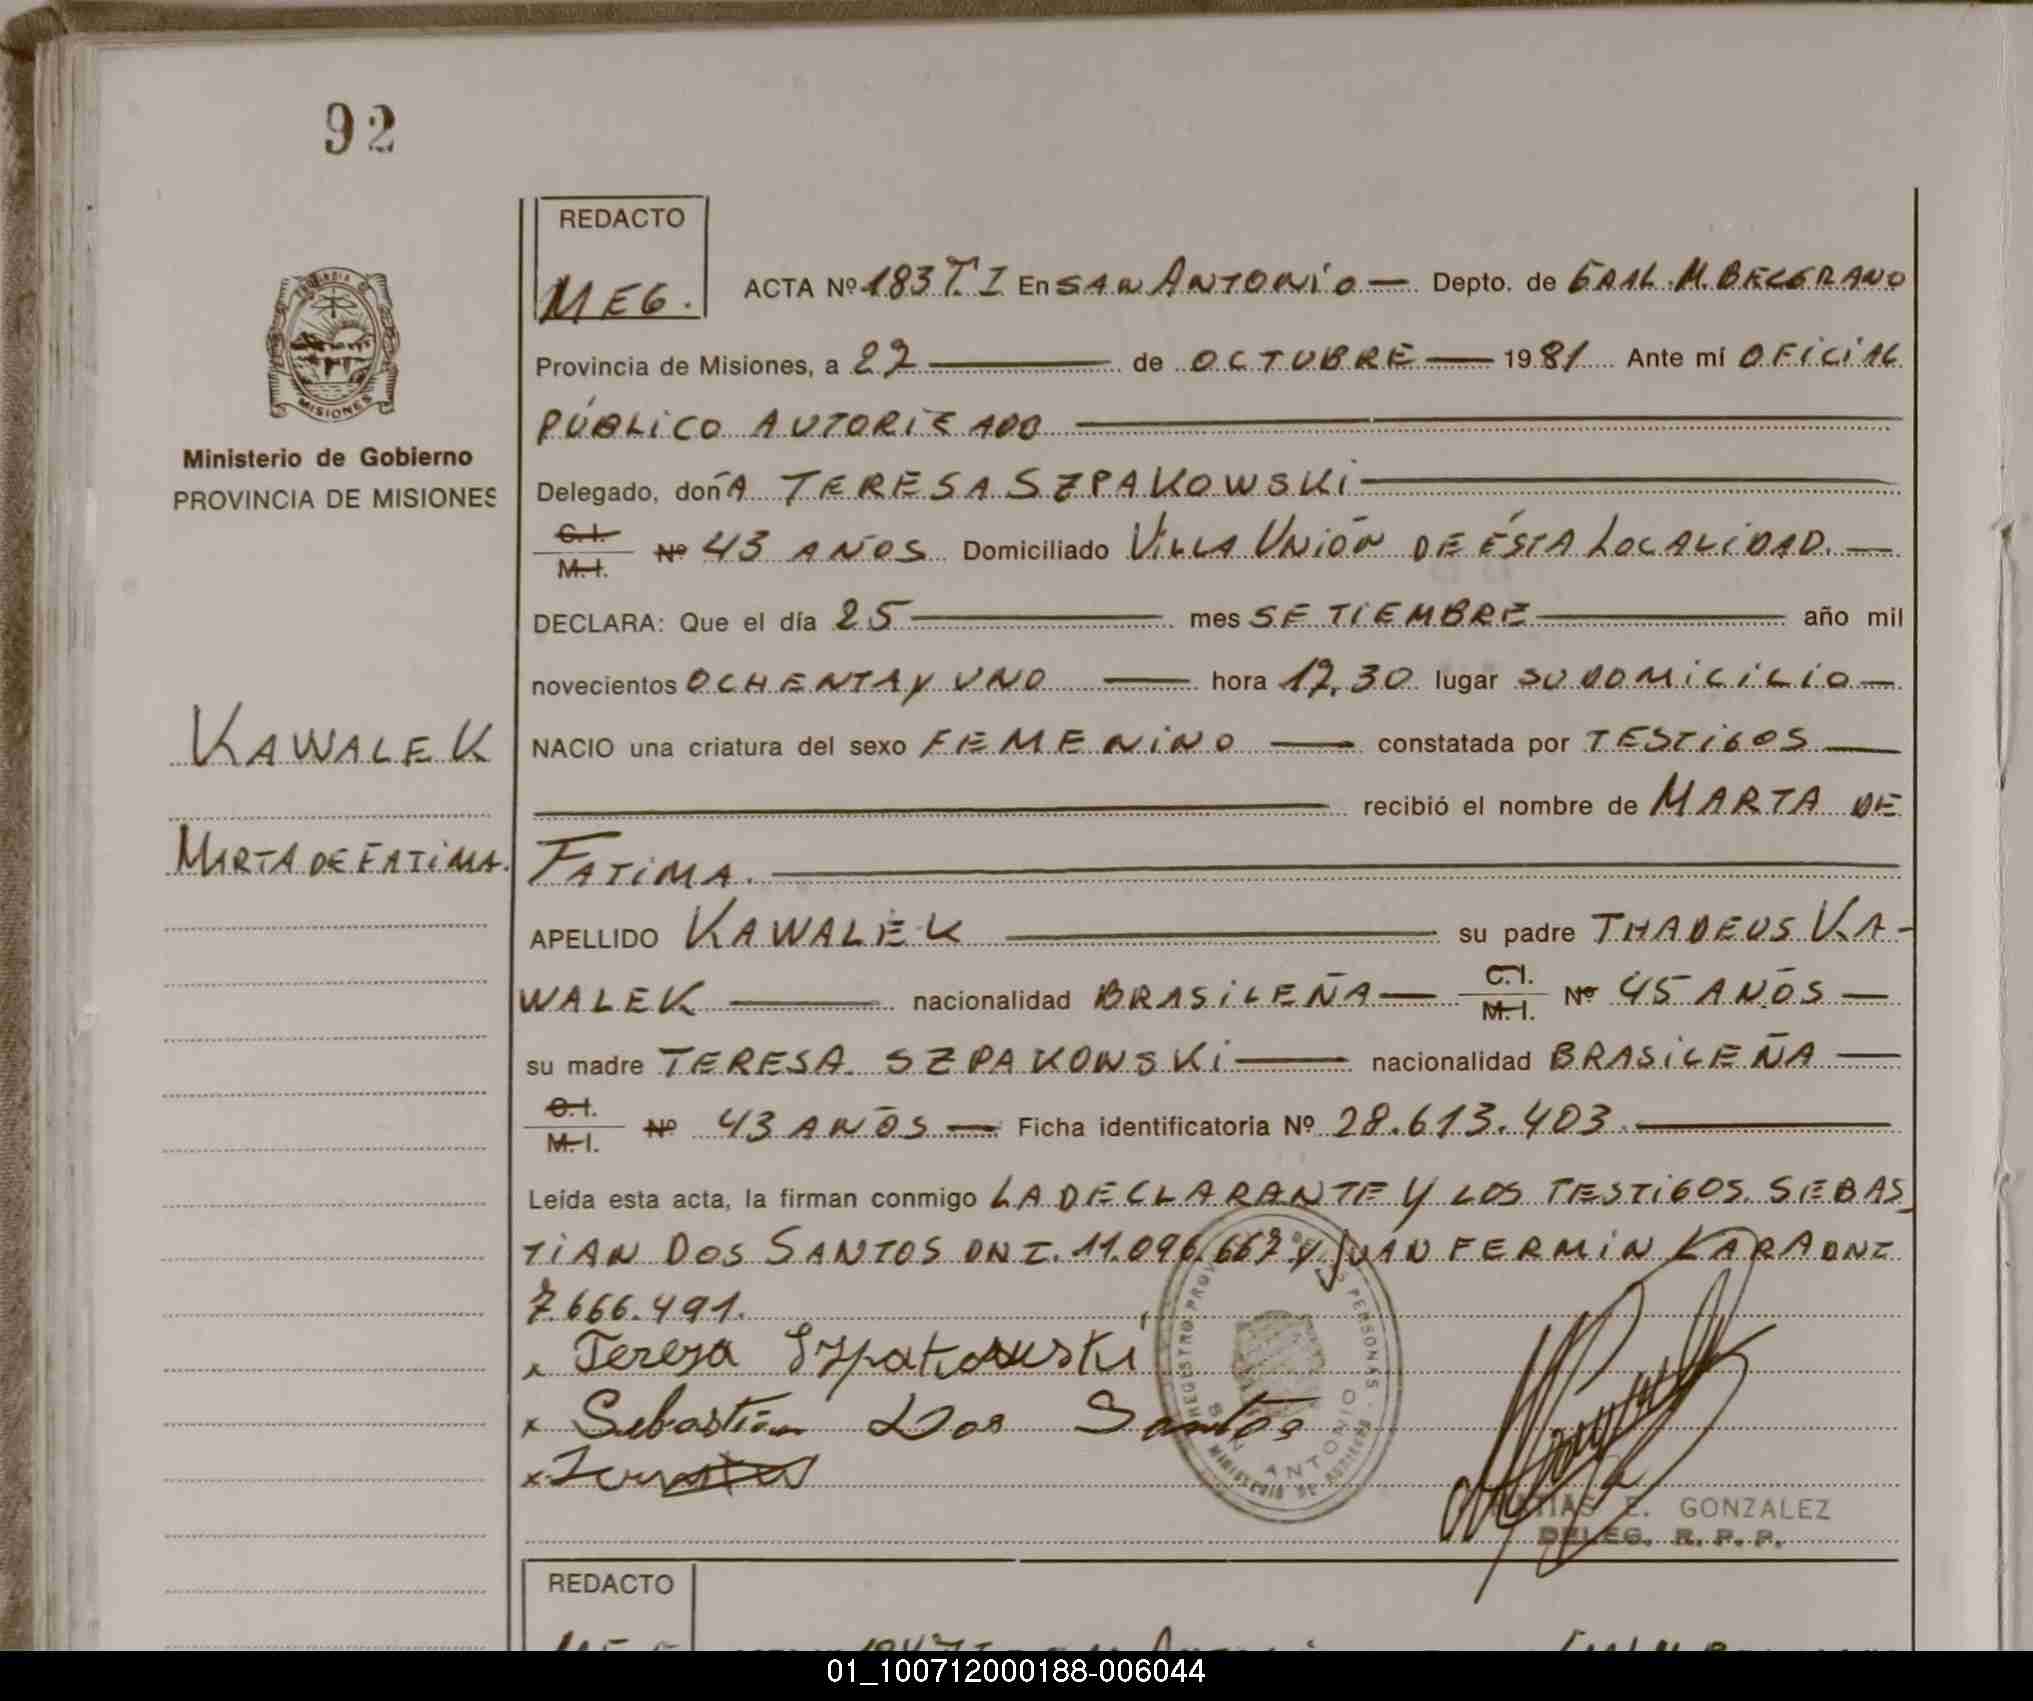 92
REDACTO
MEG.
ACTA Nº 183 T. I En SAN ANTONIO — Depto. de GRAL. M. BELGRANO
Provincia de Misiones, a 27 — de OCTUBRE — 1981 Ante mí OFICIAL
PÚBLICO AUTORIZADO —
Ministerio de Gobierno
PROVINCIA DE MISIONES
Delegado, doñA TERESA SZPAKOWSKI —
C.I. M.I. Nº 43 AÑOS Domiciliado VILLA UNIÓN DE ÉSTA LOCALIDAD. —
DECLARA: Que el día 25 — mes SETIEMBRE — año mil
novecientos OCHENTA y UNO — hora 17,30 lugar SU DOMICILIO —
KAWALEK
NACIO una criatura del sexo FEMENINO — constatada por TESTIGOS —
— recibió el nombre de MARTA DE
MARTA DE FATIMA.
FATIMA. —
APELLIDO KAWALEK — su padre THADEUS KA-
WALEK — nacionalidad BRASILEÑA — C.I. M.I. Nº 45 AÑOS —
su madre TERESA SZPAKOWSKI — nacionalidad BRASILEÑA —
C.I. M.I. Nº 43 AÑOS — Ficha identificatoria Nº 28.613.403. —
Leída esta acta, la firman conmigo LA DECLARANTE Y LOS TESTIGOS SEBAS_
TIAN DOS SANTOS DNI. 11.096.667 y JUAN FERMIN KARA DNI
7.666.491.
x Teresa Szpakowski
x Sebastián Dos Santos
SAN ANTONIO
E. GONZALEZ
DELEG. R. P. P.
REDACTO
01_100712000188-006044